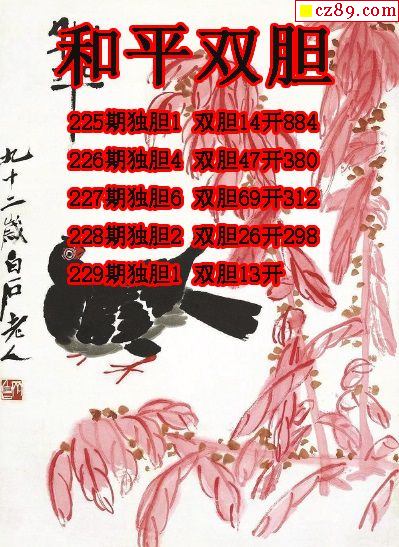 cz89.com
和平双胆
225期独胆1 双胆14开884
226期独胆4 双胆47开380
227期独胆6 双胆69开312
228期独胆2 双胆26开298
229期独胆1 双胆13开
九十二岁白石老人